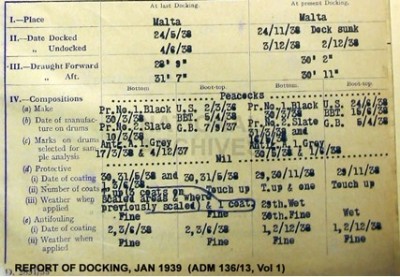 At last Docking. At present Docking.
I.—Place Malta Malta
II.—Date Docked 24/5/38 24/11/38 Dock sunk
„ Undocked 4/6/38 3/12/38 2/12/38
III.—Draught Forward 28' 9" 30' 2"
„ Aft. 31' 7" 30' 11"
Bottom Boot-top. Bottom Boot-top.
IV.—Compositions
(a) Make Peacocks
(b) Date of manufacture on drums
Pr.No.1.Black U.S. 2/3/38 Pr.No.1.Black U.S.
30/3/38 BBT. 5/4/38 30/7/38 BBT.
Pr.No.2.Slate G.B. 7/9/37 Pr.No.2.Slate G.B. 5/4/38
10/3/38
(c) Marks on drums selected for sample analysis
17/3/38 & 4/12/37
Nil
(d) Protective
(i) Date of coating 30,31/5/38 and 30,31/5/38 29,30/11/38 29/11/38
(ii) Number of coats Touch up T.up & one Touch up
(iii) Weather when applied
scaled areas & where
previously scaled) & 1 coat,
Fine Fine 29th,Wet Wet
30th.Fine
(e) Antifouling
(i) Date of coating 2,3/6/38 2,3/6/38 1,2/12/38 1,2/12/38
(ii) Weather when applied Fine Fine Fine Fine
REPORT OF DOCKING, JAN 1939 (ADM 136/13, Vol 1)